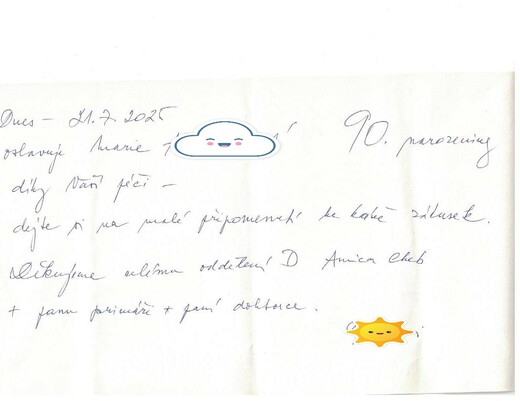 Dnes – 21.7.2025
oslavuje Marie 90. narozeniny
díky Vaší péči –
dejte si na malé připomenutí ke kávě zákusek.
Děkujeme celému oddělení D Amica Club
+ panu primáři + paní doktorce.